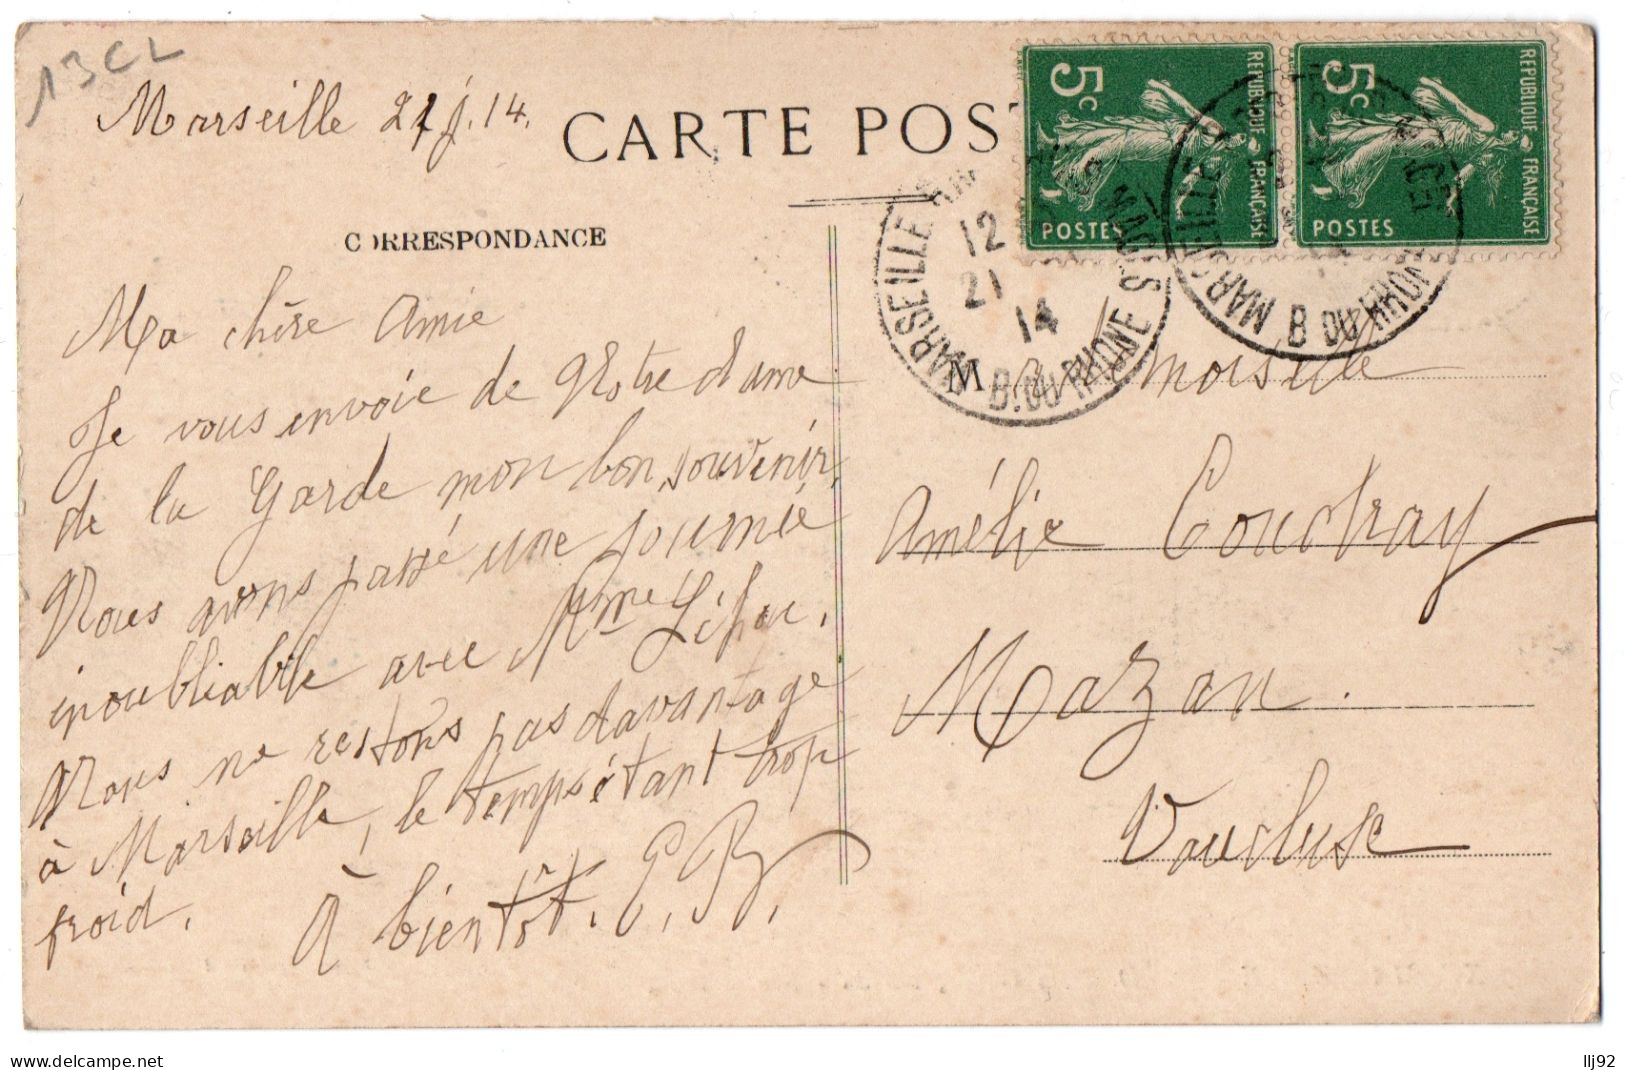 13CL
Marseille 21 j. 14.
CARTE POS
CORRESPONDANCE
Ma chère Amie
Je vous envoie de Notre dame
de la Garde mon bon souvenir.
Nous avons passé une journée
inoubliable avec Mme
Nous ne restons pas davantage
à Marseille, le temps étant trop
froid.
À bientôt. E. R.
5c
REPUBLIQUE FRANÇAISE
POSTES
5c
REPUBLIQUE FRANÇAISE
POSTES
MARSEILLE
12
21
14
B. DU RHONE
MARSEILLE
B. DU RHONE
Mademoiselle
Amélie Coudray
Mazan.
Vaucluse
www.delcampe.net
llj92